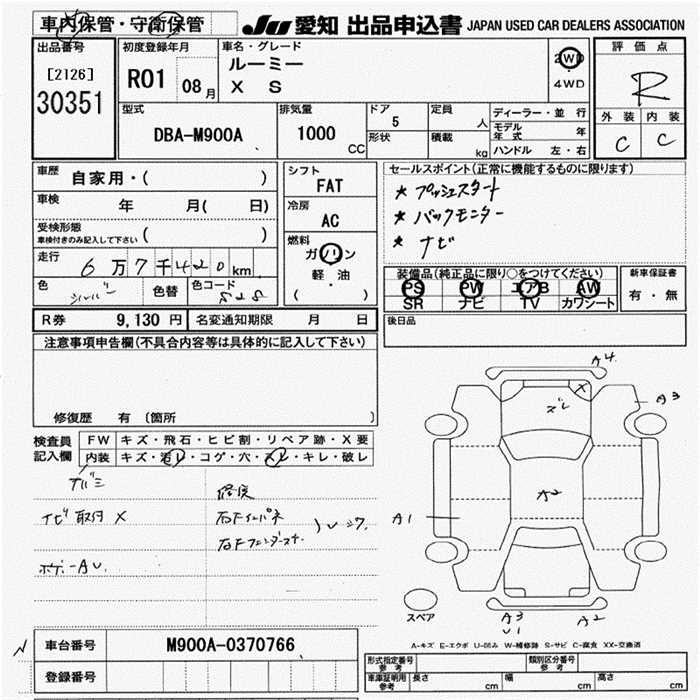 車内保管・守衛保管
JU 愛知 出品申込書 JAPAN USED CAR DEALERS ASSOCIATION
出品番号
[2126]
30351
初度登録年月
R01 08月
車名・グレード
ルーミー
X S
2WD
4WD
評価点
R
外装 内装
C C
型式
DBA-M900A
排気量
1000 CC
ドア
5
形状
定員
人
積載
kg
ディーラー・並行
モデル年式 年
ハンドル 左・右
車歴
自家用・( )
車検
年 月( 日)
受検形態
車検付きのみ記入して下さい ( )
走行
6万7千420km
色
シルバー
色替
色コード
S28
シフト
FAT
冷房
AC
燃料
ガソリン
軽・油
( )
セールスポイント(正常に機能するものに限ります)
* プッシュスタート
* バックモニター
* ナビ
装備品(純正品に限り○をつけてください)
PS PW エアB AW
SR ナビ TV カワシート
新車保証書
有・無
後日品
R券 9,130円 名変通知期限 月 日
注意事項申告欄(不具合内容等は具体的に記入して下さい)
修復歴 有 〔箇所 〕
検査員記入欄
FW キズ・飛石・ヒビ割・リペア跡・X要
内装 キズ・汚レ・コゲ・穴・スレ・キレ・破レ
ナビ取付 X
ボデーAU
修復
右Fインパネ
右Fフェンダーステー
A4
A3
ズレ
X
A2
A1
スペア
A3
U1
A2
A-キズ E-エクボ U-凹み W-補修跡 S-サビ C-腐食 XX-交換済
車台番号
M900A-0370766
登録番号
形式指定番号 参考
類別区分番号 参考
車庫証明用 参考
長さ cm
幅 cm
高さ cm